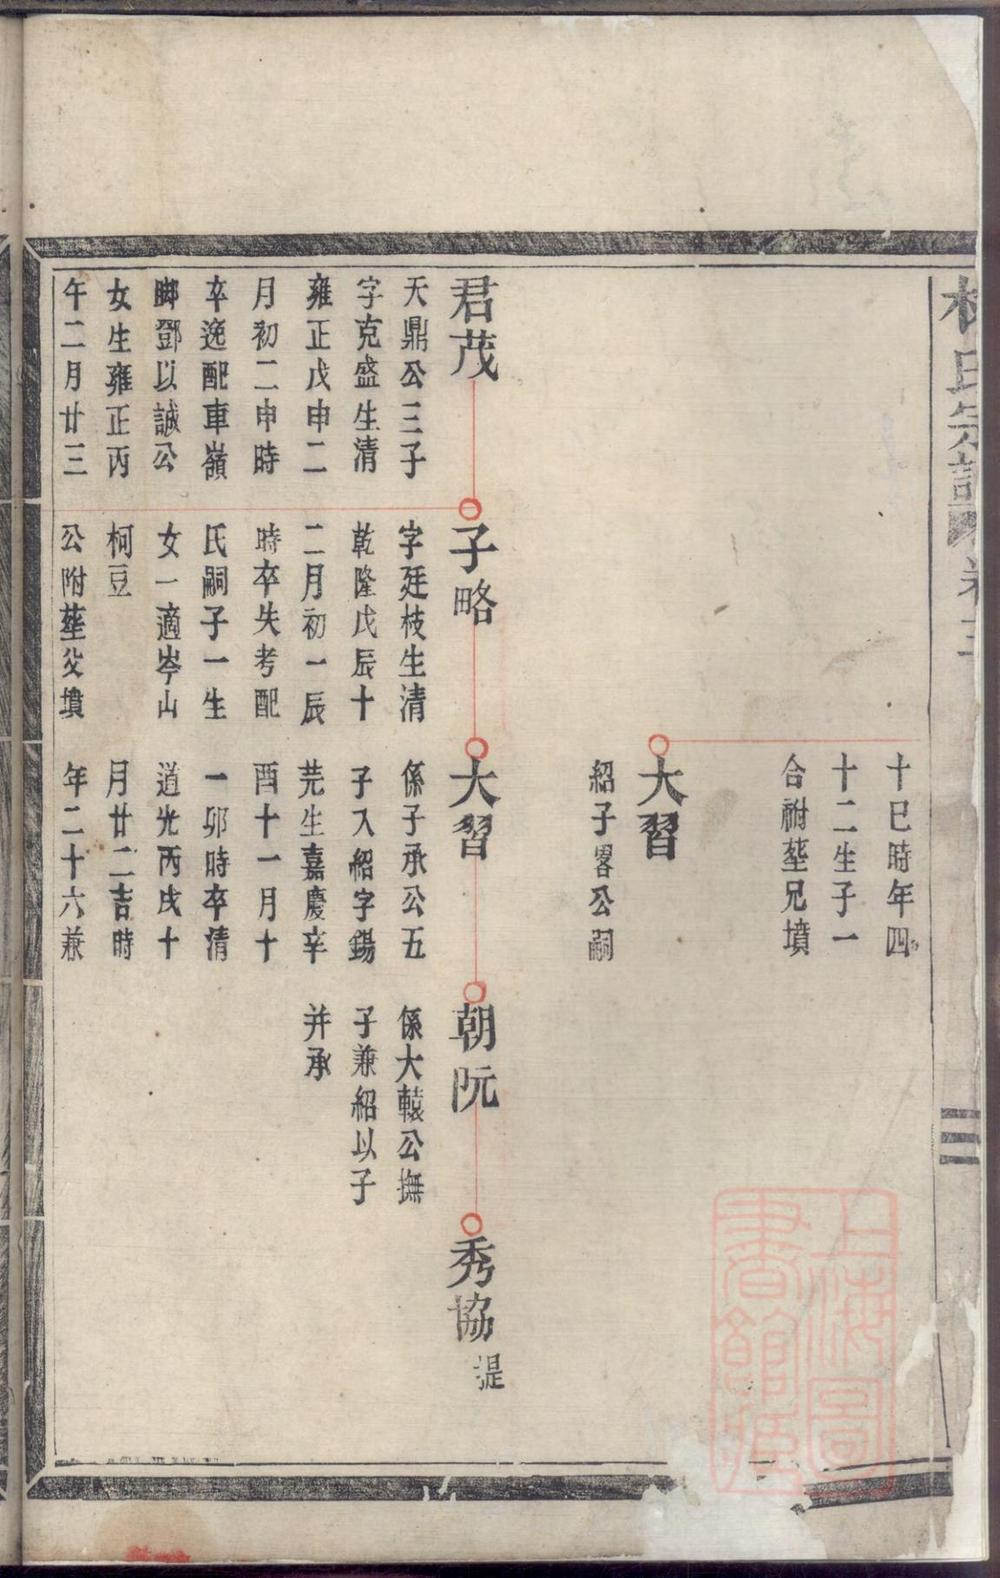 氏宗譜 卷三
十巳時年四
十二生子一
合祔塟兄墳
大習
紹子畧公嗣
君茂
天鼎公三子
字克盛生清
雍正戊申二
月初二申時
卒逸配車嶺
脚鄧以誠公
女生雍正丙
午二月廿三
子略
字廷枝生清
乾隆戊辰十
二月初一辰
時卒失考配
氏嗣子一生
女一適岑山
柯豆
公附塟父墳
大習
係子承公五
子入紹字錫
芫生嘉慶辛
酉十一月十
一卯時卒清
道光丙戌十
月廿二吉時
年二十六兼
朝阮
係大轅公撫
子兼紹以子
并承
秀協 提
三
上海圖書館藏